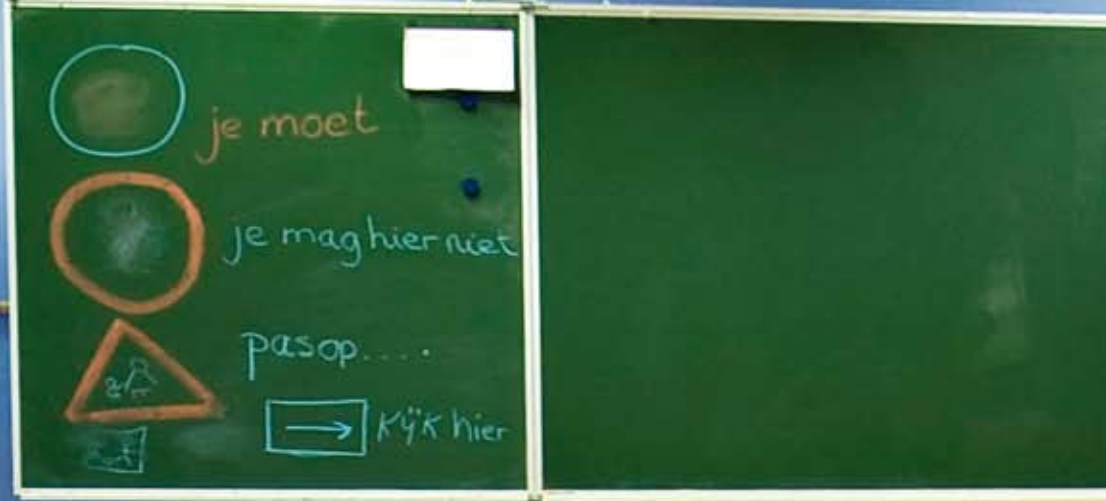 je moet
je mag hier niet
pas op.....
kijk hier